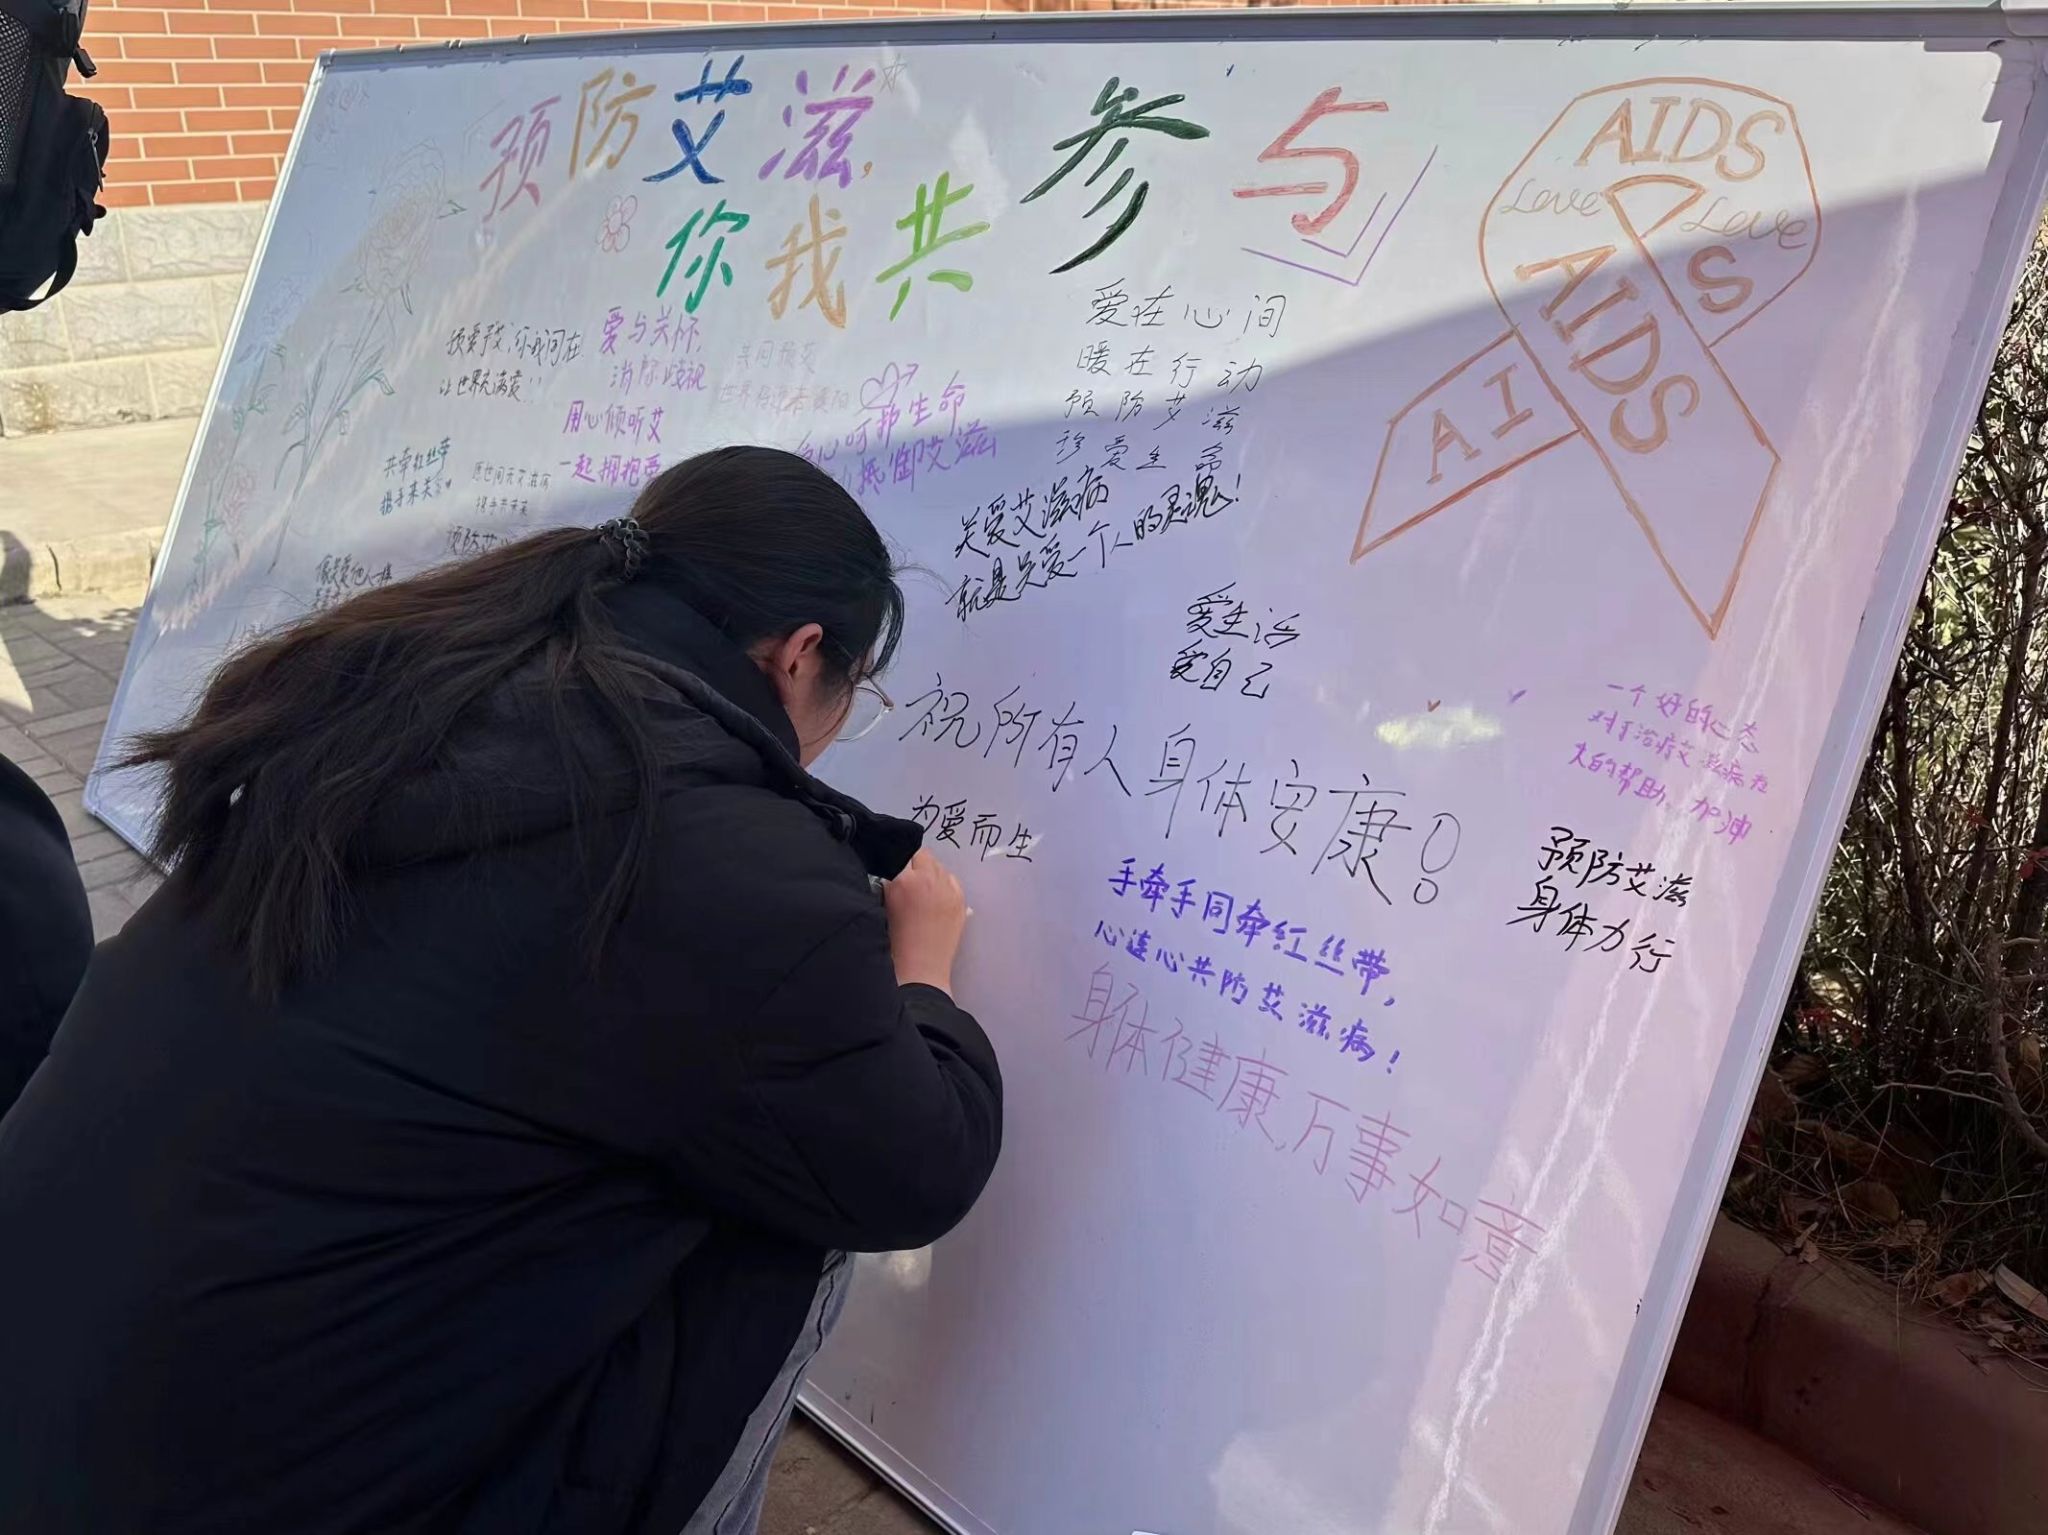 预防艾滋,
你我共参与
AIDS
Love Love
AIDS
S
AI
爱与关怀,
消除歧视
用心倾听艾
一起拥抱爱
让世界充满爱!!
共牵红丝带
携手来关
愿世间无艾滋病
携手共未来
共同预艾
心呵护生命
抵御艾滋
爱在心间
暖在行动
预防艾滋
珍爱生命
关爱艾滋病
就是关爱一个人的灵魂!
爱生活
爱自己
祝所有人身体安康!
为爱而生
一个好的心态
对于治疗艾滋病有
大的帮助。加油
预防艾滋
身体力行
手牵手同牵红丝带,
心连心共防艾滋病!
身体健康,万事如意